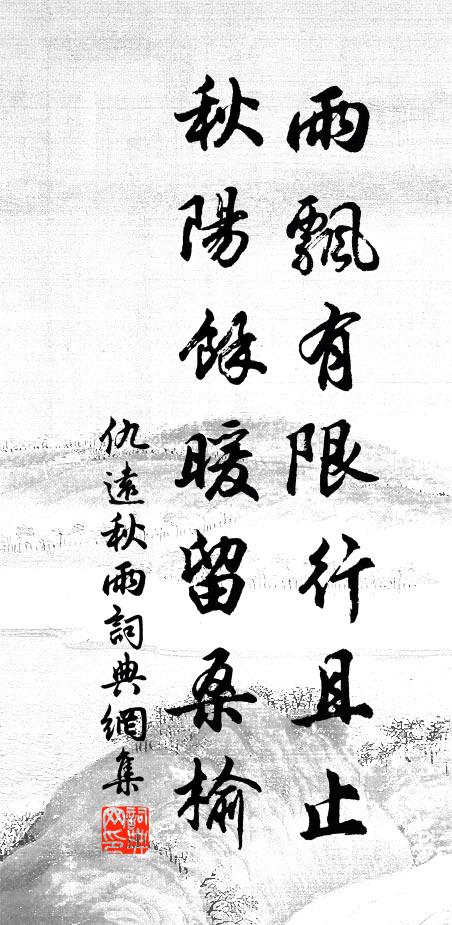 雨飄有限行且止
秋陽餘暖留桑榆
仇遠秋雨詞典網集